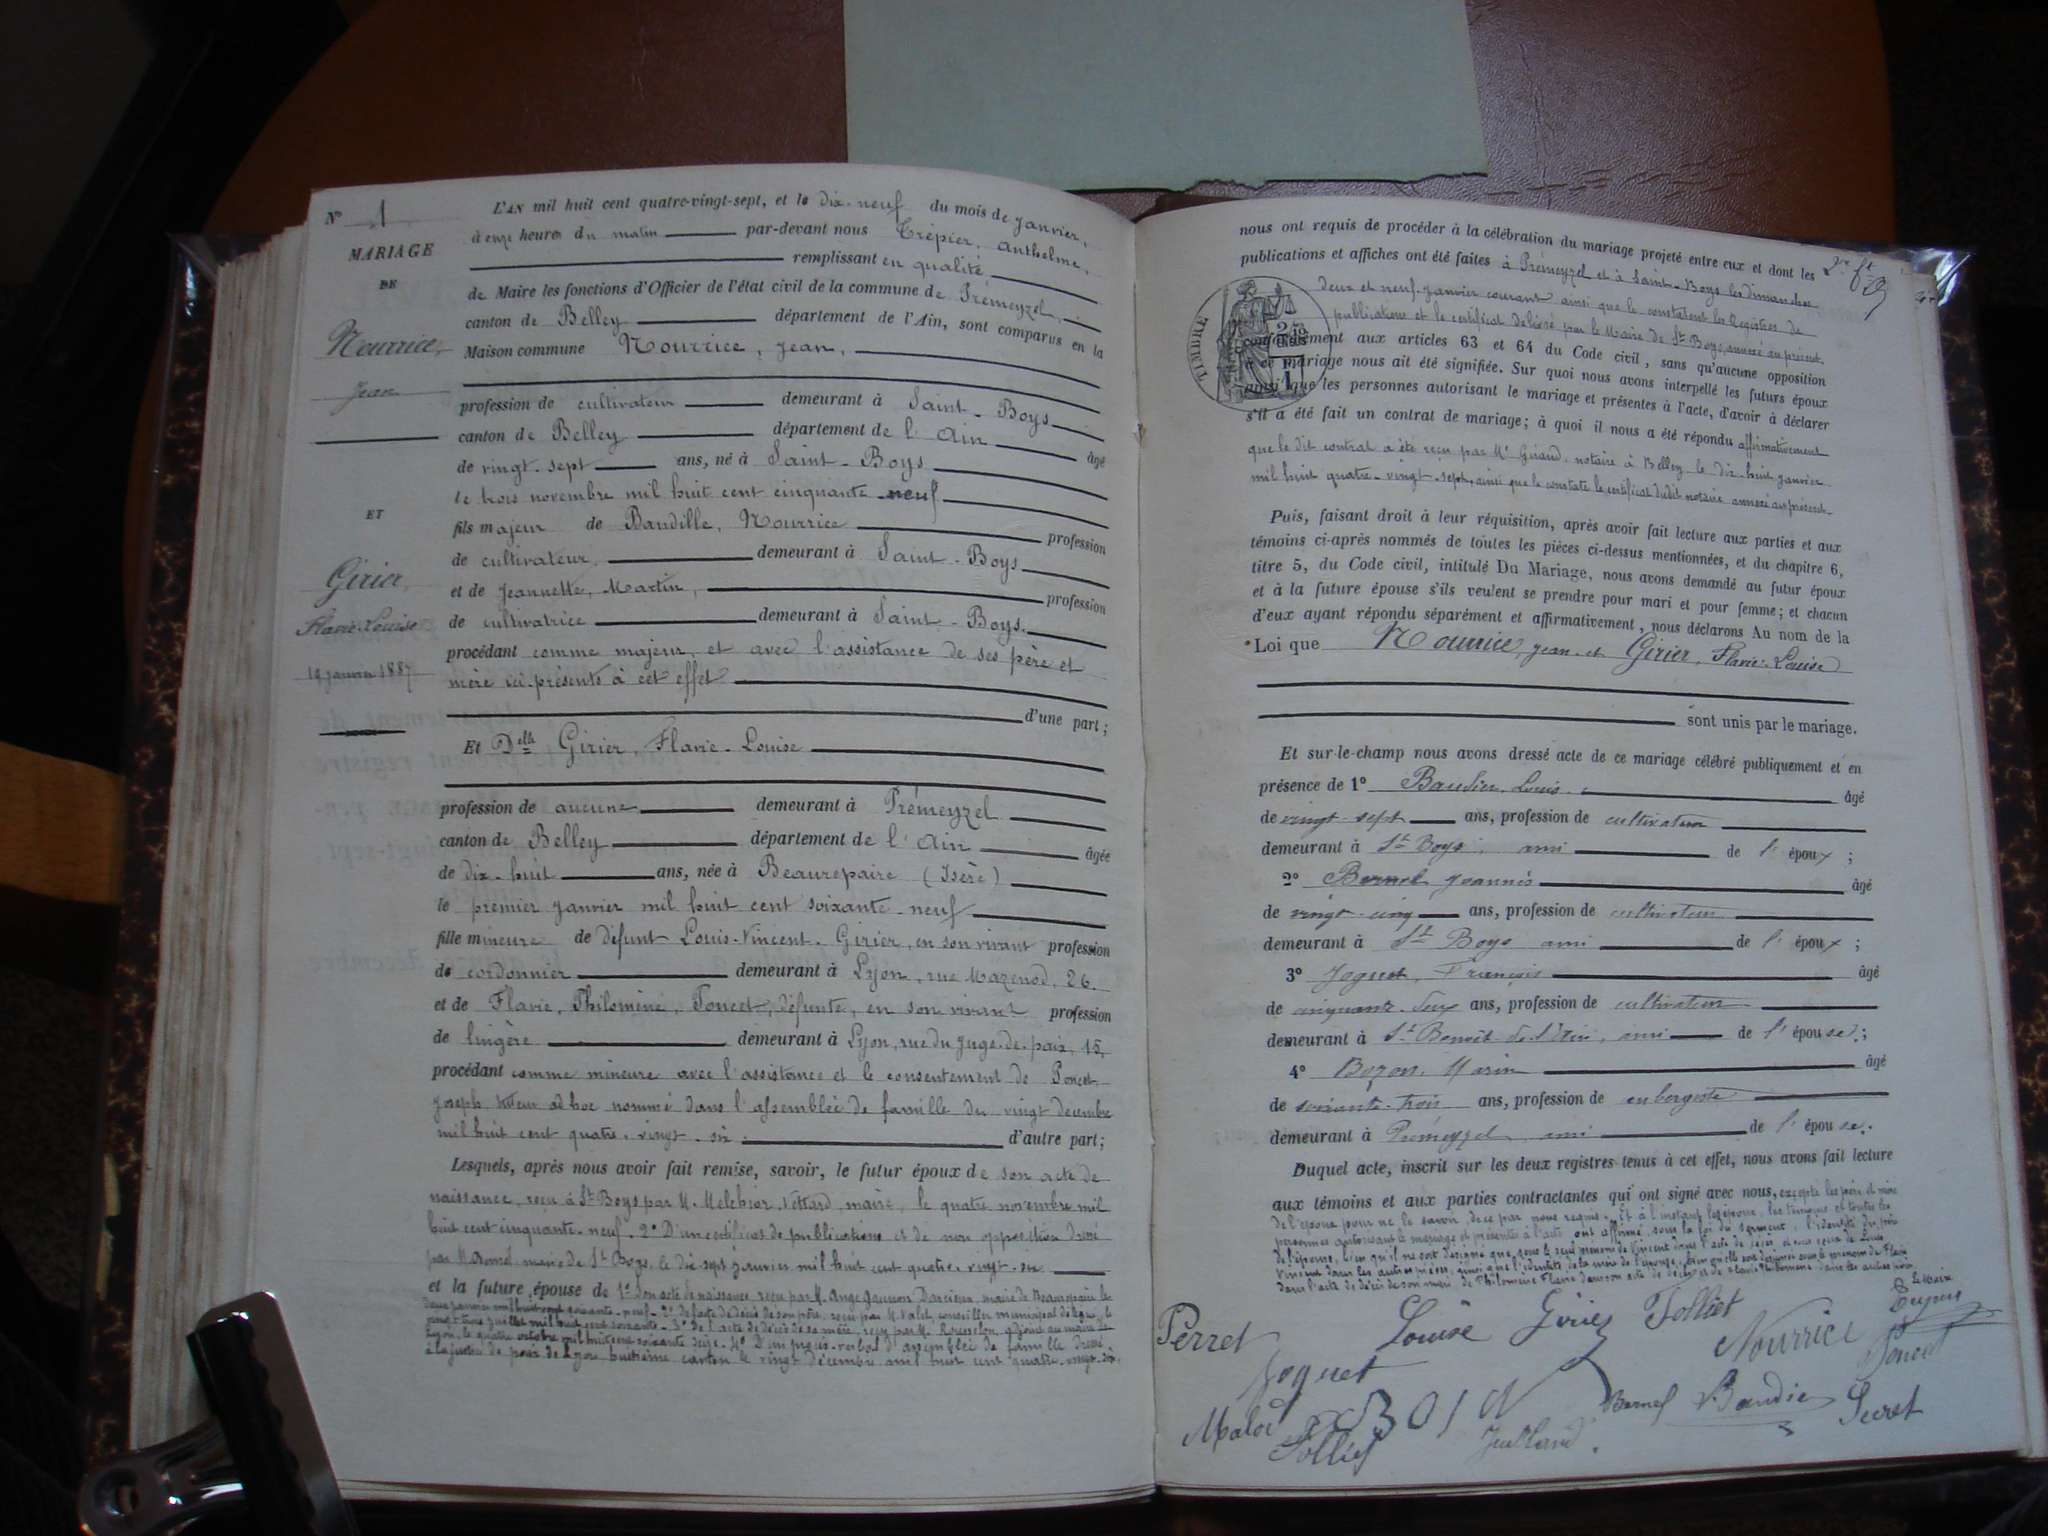 N° 1
MARIAGE
DE
Nourrice,
Jean
ET
Girier,
Flavie-Louise
19 janvier 1887
L'AN mil huit cent quatre-vingt-sept, et le dix-neuf du mois de janvier,
à onze heures du matin par-devant nous Trépier, Anthelme,
remplissant en qualité
de Maire les fonctions d'Officier de l'état civil de la commune de Prémeyzel,
canton de Belley département de l'Ain, sont comparus en la
Maison commune Nourrice, Jean,
profession de cultivateur demeurant à Saint-Boys
canton de Belley département de l'Ain âgé
de vingt-sept ans, né à Saint-Boys
le trois novembre mil huit cent cinquante-neuf
fils majeur de Baudille, Nourrice profession
de cultivateur, demeurant à Saint-Boys
et de Jeannette, Martin, profession
de cultivatrice demeurant à Saint-Boys.
procédant comme majeur, et avec l'assistance de ses père et
mère ici présents à cet effet
d'une part;
Et Delle Girier, Flavie-Louise
profession de aucune demeurant à Prémeyzel
canton de Belley département de l'Ain âgée
de dix-huit ans, née à Beaurepaire (Isère)
le premier janvier mil huit cent soixante-neuf
fille mineure de défunt Louis-Vincent-Girier, en son vivant profession
de cordonnier demeurant à Lyon, rue Mazenod, 26.
et de Flavie, Philomène, Poncet, défunte, en son vivant profession
de lingère demeurant à Lyon, rue du Juge-de-paix, 15,
procédant comme mineure avec l'assistance et le consentement de Poncet
Joseph tuteur ad hoc nommé dans l'assemblée de famille du vingt decembre
mil huit cent quatre-vingt-six. d'autre part;
Lesquels, après nous avoir fait remise, savoir, le futur époux de son acte de
naissance, reçu à St Boys par M. Melchior, Vettard, maire, le quatre novembre mil
huit cent cinquante-neuf. 2° D'un certificat de publications et de non opposition dressé
par M. maire de St Boys, le dix-sept janvier mil huit cent quatre-vingt-six
et la future épouse de 1° Son acte de naissance, reçu par M. Ange maire de Beaurepaire le
deux janvier mil huit cent soixante-neuf - 2° de l'acte de décès de son père, reçu par M. Valet, conseiller municipal de Lyon, le
vingt juillet mil huit cent soixante - 3° de l'acte de décès de sa mère, reçu par M. Rousselon, adjoint au maire de
Lyon, le quatre octobre mil huit cent soixante seize. 4° D'un procès-verbal d'assemblée de famille dressé
à la justice de paix de Lyon huitième canton le vingt décembre mil huit cent quatre-vingt-six.
nous ont requis de procéder à la célébration du mariage projeté entre eux et dont les
publications et affiches ont été faites à Prémeyzel et à Saint-Boys les dimanches
deux et neuf janvier courant ainsi que le constatent les registres de
publications et le certificat délivré par le Maire de St Boys, annexé au présent.
TIMBRE
conformément aux articles 63 et 64 du Code civil, sans qu'aucune opposition
à ce mariage nous ait été signifiée. Sur quoi nous avons interpellé les futurs époux
ainsi que les personnes autorisant le mariage et présentes à l'acte, d'avoir à déclarer
s'il a été fait un contrat de mariage; à quoi il nous a été répondu affirmativement
que le dit contrat a été reçu par Me Giraud, notaire à Belley le dix-huit janvier
mil huit quatre-vingt-sept, ainsi que le constate le certificat dudit notaire annexé au présent.
Puis, faisant droit à leur réquisition, après avoir fait lecture aux parties et aux
témoins ci-après nommés de toutes les pièces ci-dessus mentionnées, et du chapitre 6,
titre 5, du Code civil, intitulé Du Mariage, nous avons demandé au futur époux
et à la future épouse s'ils veulent se prendre pour mari et pour femme; et chacun
d'eux ayant répondu séparément et affirmativement, nous déclarons Au nom de la
Loi que Nourrice, Jean et Girier, Flavie-Louise
sont unis par le mariage.
Et sur-le-champ nous avons dressé acte de ce mariage célébré publiquement et en
présence de 1° Baudin, Louis. âgé
de vingt-sept ans, profession de cultivateur
demeurant à St Boys, ami de l'époux;
2° Bornel Joannès âgé
de vingt-cinq ans, profession de cultivateur
demeurant à St Boys ami de l'époux;
3° Joguet, François âgé
de cinquante-deux ans, profession de cultivateur
demeurant à St Benoît de l'Ain, ami de l'épouse;
4° Bozon, Marin âgé
de soixante-trois ans, profession de aubergiste
demeurant à Prémeyzel ami de l'épouse.
Duquel acte, inscrit sur les deux registres tenus à cet effet, nous avons fait lecture
aux témoins et aux parties contractantes qui ont signé avec nous, excepté les père et mère
de l'époux pour ne le savoir, de ce par nous requis. Et à l'instant les époux, les témoins et toutes les
personnes autorisant le mariage et présentes à l'acte ont affirmé, sous la foi du serment, l'identité du père
de l'épouse, bien qu'il ne soit désigné que sous le seul prénom de Vincent dans l'acte de décès et sous ceux de Louis
Vincent dans les autres pièces, ainsi que l'identité de la mère de l'épouse, bien qu'elle soit désignée sous le prénom de Flavie
dans l'acte de décès de son mari, de Philomène Flavie dans son acte de décès et de Flavie Philomène dans les autres pièces
Le Maire
Perret Louise Girier Tolliet Nourrice Poncet
Joguet
Bornel Baudin Secret
Tolliet